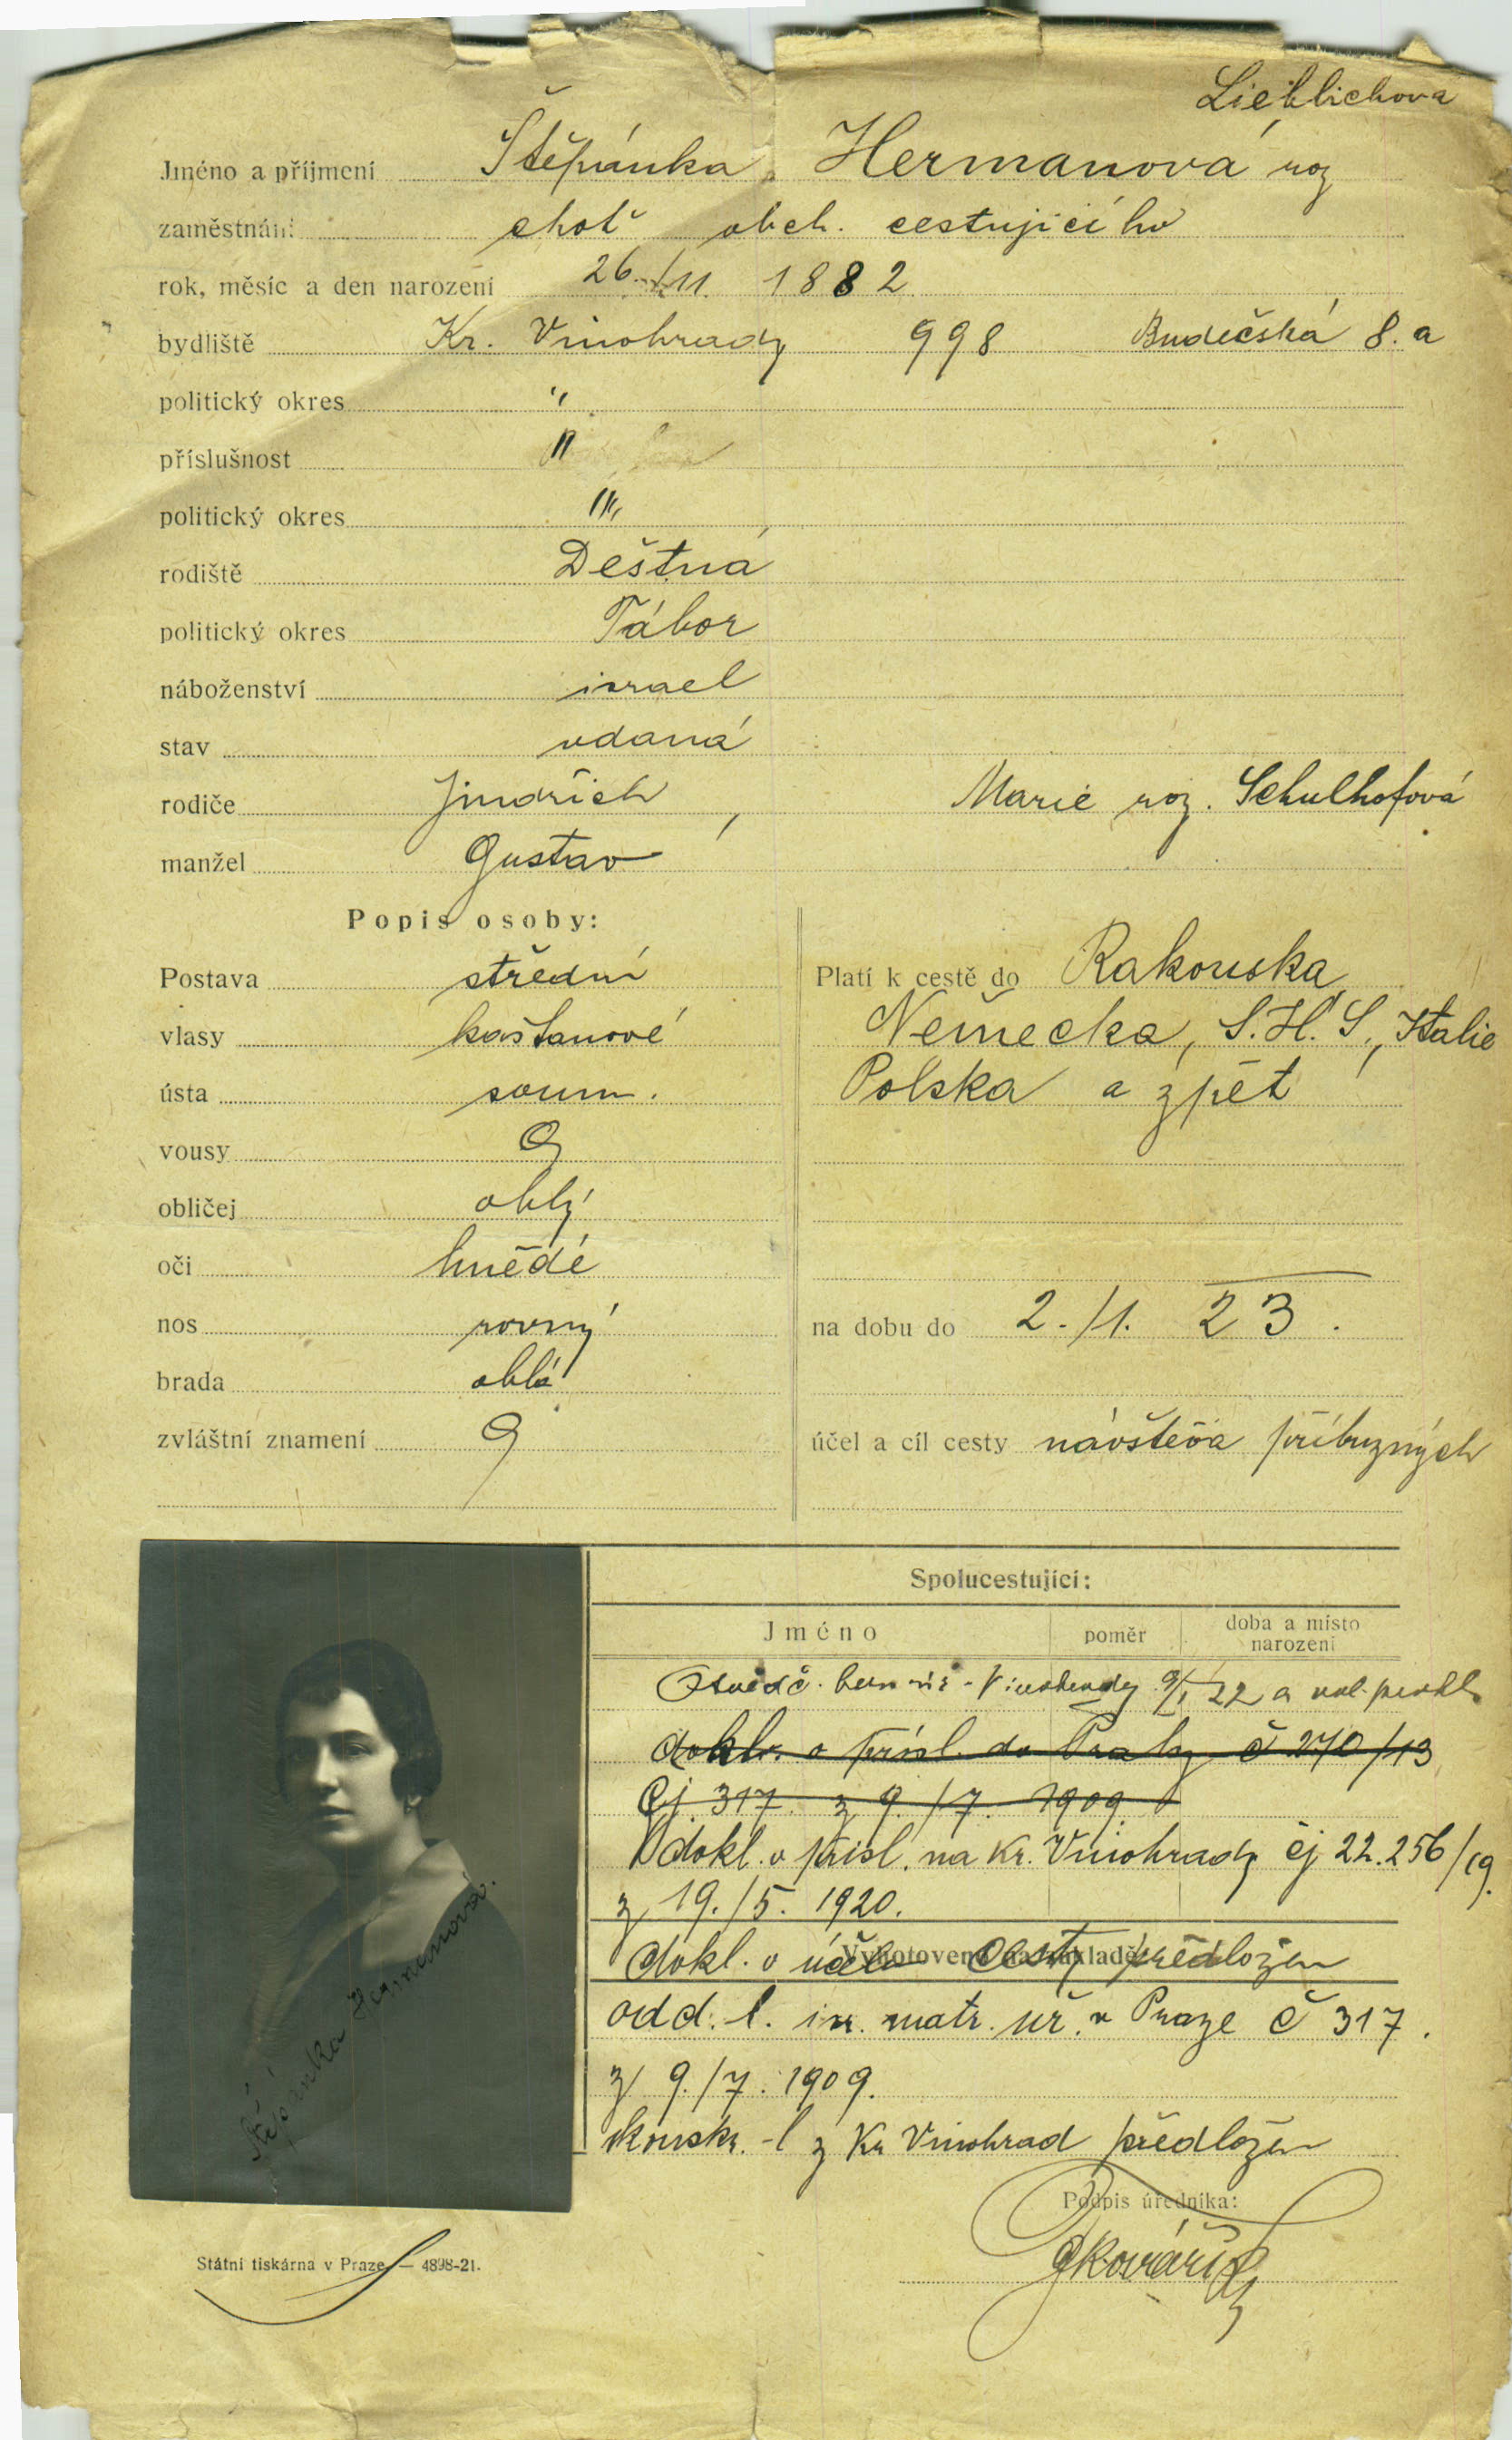 Lieblichova
Jméno a příjmení Štěpánka Hermanová roz
zaměstnání choť obch. cestujícího
rok, měsíc a den narození 26./11. 1882
bydliště Kr. Vinohrady 998 Budečská 8.a
politický okres "
příslušnost "
politický okres "
rodiště Deštná
politický okres Tábor
náboženství israel
stav vdaná
rodiče Jindřich, Marie roz. Schulhofová
manžel Gustav
Popis osoby:
Postava střední
vlasy kaštanové
ústa soum.
vousy
obličej oblý
oči hnědé
nos rovný
brada oblá
zvláštní znamení
Platí k cestě do Rakouska,
Německa, S.H.S., Italie,
Polska a zpět
na dobu do 2./1. 23.
účel a cíl cesty návštěva příbuzných
Spolucestující:
Jméno poměr doba a místo narození
Osvědč. Vinohrady 9/1 22 a
dokl. o přísl. do Prahy č 270/13
čj. 317. z 9./7. 1909.
dokl. o přísl. na Kr. Vinohrady čj 22.256/19.
z 19./5. 1920.
Vyhotoveno na základě:
dokl. o účelu cesty předložen
odd. l. isr. matr. úř. v Praze č 317.
z 9./7. 1909.
z Kr Vinohrad předložen
Podpis úředníka:
Kovařík
Štěpánka Hermanová.
Státní tiskárna v Praze — 4898-21.